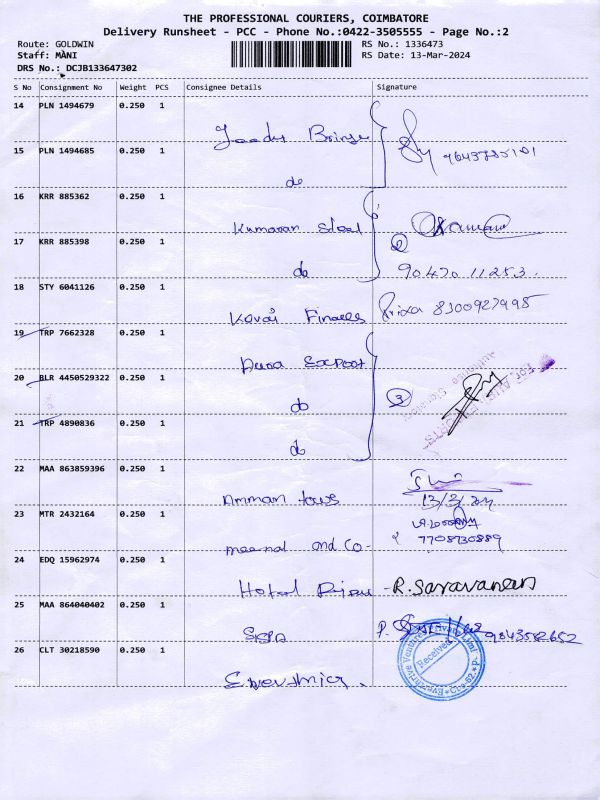 THE PROFESSIONAL COURIERS, COIMBATORE
Delivery Runsheet - PCC - Phone No.:0422-3505555 - Page No.:2
Route: GOLDWIN
RS No.: 1336473
Staff: MANI
RS Date: 13-Mar-2024
DRS No.: DCJB133647302
S No Consignment No Weight PCS Consignee Details Signature
14 PLN 1494679 0.250 1
15 PLN 1494685 0.250 1
do
16 KRR 885362 0.250 1 Kumaran Steel
17 KRR 885398 0.250 1 2
do 90470 11253.
18 STY 6041126 0.250 1 Kovai 8300927995
19 TRP 7662328 0.250 1
20 BLR 4450529322 0.250 1 3
do
21 TRP 4890836 0.250 1
do
22 MAA 863859396 0.250 1 Amman 13/3/24
23 MTR 2432164 0.250 1 and Co- 7708730889
24 EDQ 15962974 0.250 1 Hotel R. Saravanan
25 MAA 864040402 0.250 1 P. 9843582652
26 CLT 30218590 0.250 1
Received